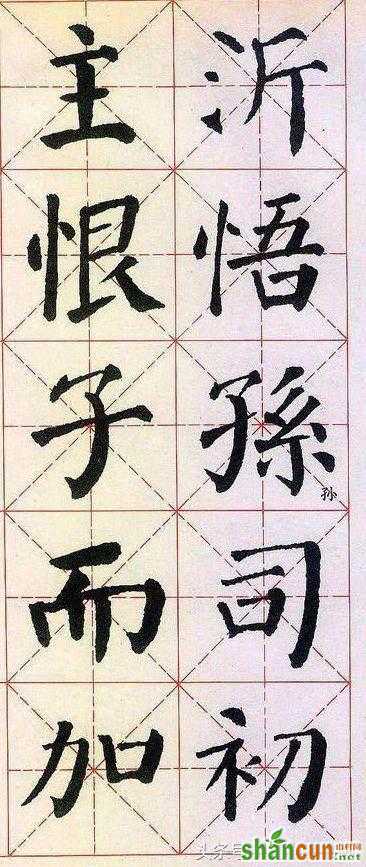 沂悟孫司初
孙
主恨子而加
头条
shancun
山村网
.net